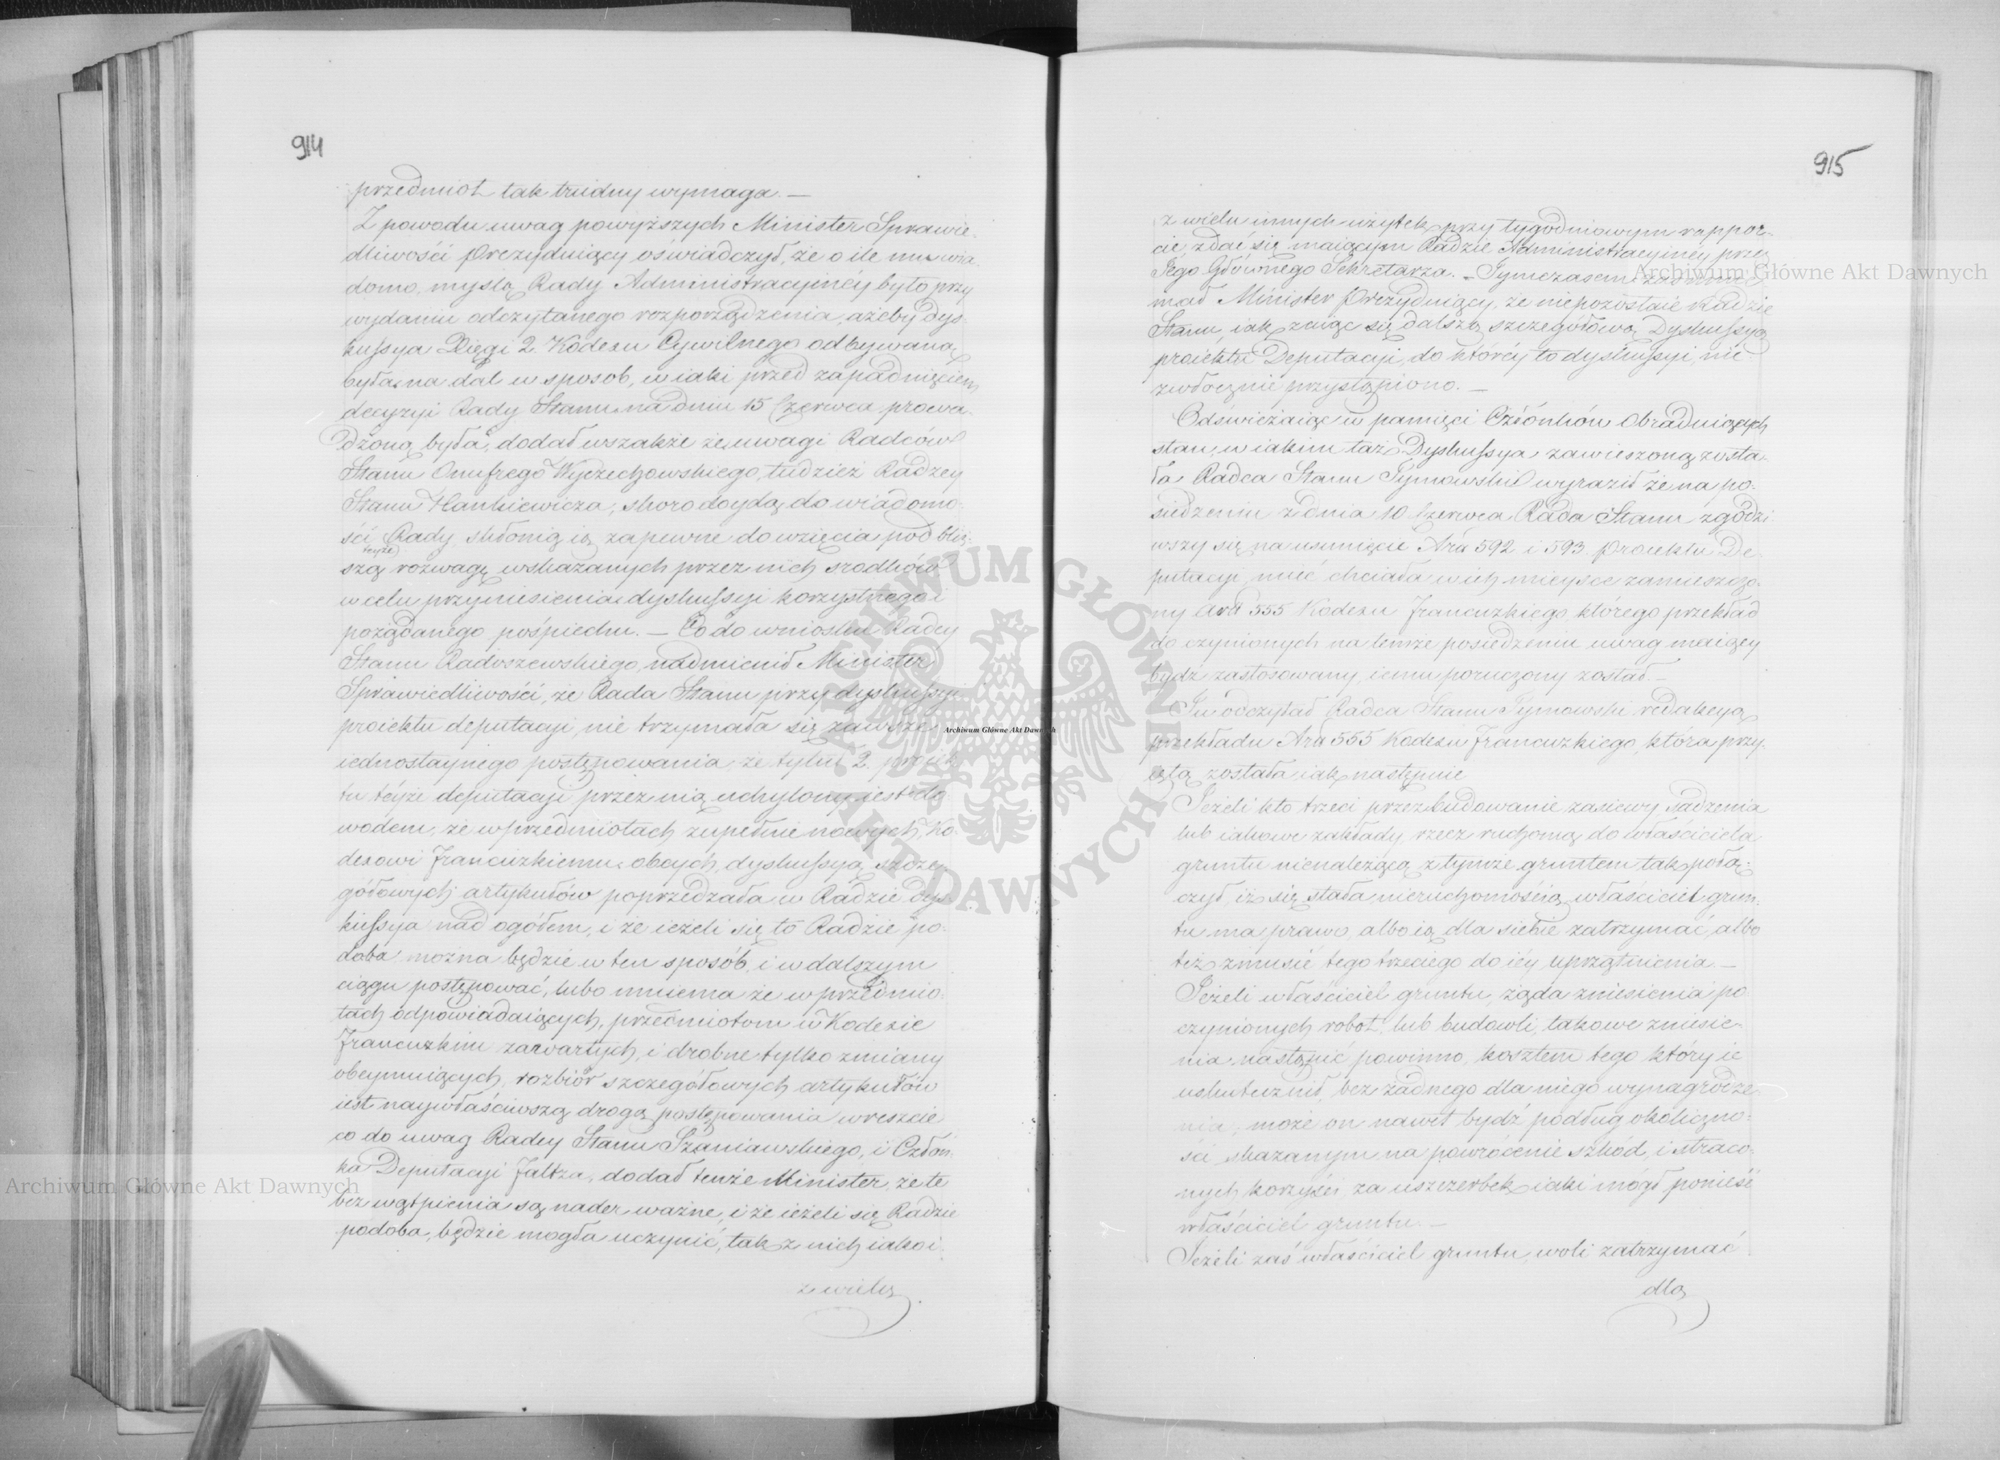 914
przedmiot tak trudny wymaga. —
Z powodu uwag powyższych Minister Sprawie-
dliwości Prezyduiący oświadczył, że o ile mu wia-
domo, myślą Rady Administracyinéy było przy
wydaniu odczytanego rozporządzenia, ażeby dys-
kussya Xięgi 2. Kodexu Cywilnego odbywaną
była na dal w sposob, w iaki przed zapadnięciem
decyzyi Rady Stanu na dniu 15 Czerwca prowa-
dzoną była, dodał wszakże że uwagi Radców
Stanu Onufrego Wyczechowskiego, tudzież Radzcy
Stanu Hankiewicza, skoro doydą do wiadomo-
ści Rady skłonią ią zapewne do wzięcia pod bliż-
szą rozwagę wskazanych przez nich srodków
w celu przyniesienia dyskussyi korzystnego i
pożądanego pośpiechu. — Co do wniosku Radcy
Stanu Radoszewskiego, nadmienił Minister
Sprawiedliwości, że Rada Stanu przy dyskussyi
proiektu deputacyi nie trzymała się zawsze
iednostaynego postępowania, że tytuł 2. proiek-
tu téyże deputacyi przez nią uchylony iest do
wodem, że w przedmiotach zupełnie nowych, Ko-
dexowi Francuzkiemu obcych, dyskussyą szcze-
gółowych artykułów poprzedzała w Radzie dys-
kussya nad ogółem, i że ieżeli się to Radzie po-
doba można będzie w ten sposób, i w dalszym
ciągu postępować, lubo mniema że w przedmio-
tach odpowiadaiących, przedmiotom w Kodexie
Francuzkim zawartych, i drobne tylko zmiany
obeymuiących, rozbiór szczegółowych artykułów
iest naywłaściwszą drogą postępowania wreszcie
co do uwag Radcy Stanu Szaniawskiego, i Człon-
ka Deputacyi Faltza, dodał tenże Minister, że te
bez wątpienia są nader ważne, i że ieżeli się Radzie
podoba, będzie mogła uczynić, tak z nich iako i
z wielu
915
z wielu innych użytek przy tygodniowym rappor-
cie zdać się maiącym Radzie Administracyinéy przez
Jego Głównego Sekretarza. — Tymczasem
miał Minister Prezyduiący, że nie pozostaie Radzie
Stanu, iak zaiąć się dalszą szczegółową Dyskussyą
proiektu Deputacyi, do któréy to dyskussyi, nie
zwłocznie przystąpiono. —
Odświeżaiąc w pamięci Członków Obraduiących
stan, w iakim taż Dyskussya zawieszoną zosta-
ła Radca Stanu Tymowski wyraził że na po-
siedzeniu z dnia 10 Czerwca Rada Stanu zgodzi-
wszy się na usunięcie Artu 592 i 593 Proiektu De-
putacyi, mieć chciała w ich mieysce zamieszczo-
ny Artł 555 Kodexu Francuzkiego którego przekład
do czynionych na temże posiedzeniu uwag maiący
bydź zastosowany, iemu poruczony został —
Tu odczytał Radca Stanu Tymowski redakcyą
przekładu Artu 555 Kodexu Francuzkiego, która przy-
iętą została iak następuie
Jeżeli kto trzeci przez budowanie zasiewy sadzenia
lub iakowe zakłady, rzecz ruchomą do właściciela
gruntu nienależącą z tymże gruntem tak połą-
czył iż się stała nieruchomością, właściciel grun-
tu ma prawo, albo ią dla siebie zatrzymać, albo
też zmusić tego trzeciego do iéy uprzątnienia. —
Jeżeli właściciel gruntu, żąda zniesienia po-
czynionych robot lub budowli, takowe zniesie-
nia nastąpić powinno, kosztem tego który ie
uskutecznił, bez żadnego dla niego wynagrodze-
nia; może on nawet bydź podług okoliczno-
ści, skazanym na powrócenie szkód, i straco-
nych korzyści, za uszczerbek, iaki mógł ponieść
właściciel gruntu. —
Jeżeli zaś właściciel gruntu, woli zatrzymać
dla
Archiwum Główne Akt Dawnych
Archiwum Główne Akt Dawnych
Archiwum Główne Akt Dawnych
ARCHIWUM GŁÓWNE AKT DAWNYCH